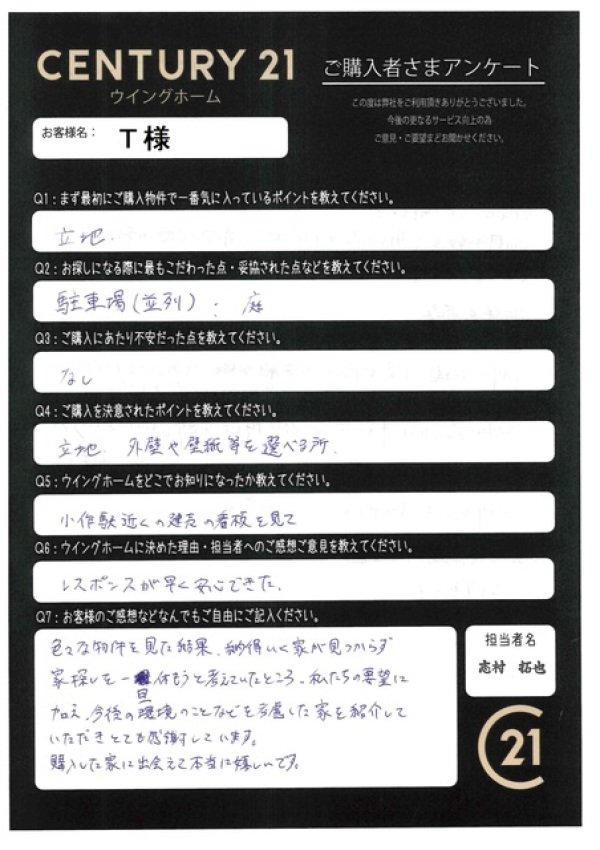 CENTURY 21
ウイングホーム
ご購入者さまアンケート
この度は弊社をご利用頂きありがとうございました。
今後の更なるサービス向上の為
ご意見・ご要望まどお聞かせください。
お客様名： T様
Q1：まず最初にご購入物件で一番気に入っているポイントを教えてください。
立地.
Q2：お探しになる際に最もこだわった点・妥協された点などを教えてください。
駐車場(並列)．庭
Q3：ご購入にあたり不安だった点を教えてください。
なし
Q4：ご購入を決意されたポイントを教えてください。
立地. 外壁や壁紙等を選べる所.
Q5：ウイングホームをどこでお知りになったか教えてください。
小作駅近くの建売の看板を見て
Q6：ウイングホームに決めた理由・担当者へのご感想ご意見を教えてください。
レスポンスが早く安心できた.
Q7：お客様のご感想などなんでもご自由にご記入ください。
色々な物件を見た結果、納得いく家が見つからず
家探しを一旦休もうと考えていたところ、私たちの要望に
加え、今後の環境のことなどを考慮した家を紹介して
いただきとても感謝しています。
購入した家に出会えて本当に嬉しいです。
担当者名
志村 拓也
21